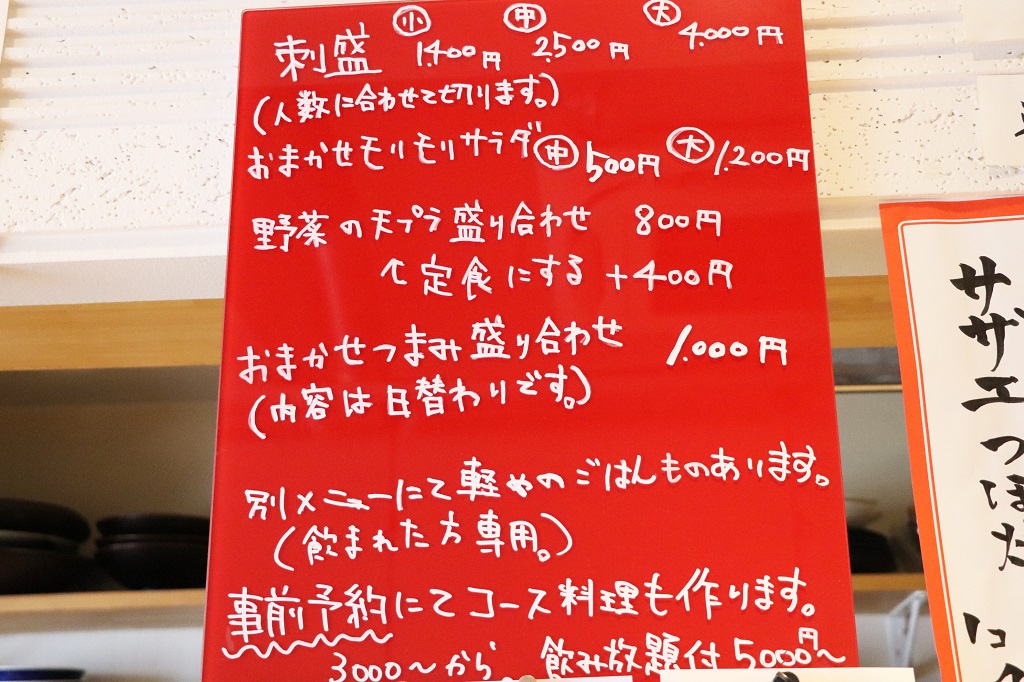 刺盛 小 1.400円 中 2.500円 大 4.000円
(人数に合わせて切ります。)
おまかせモリモリサラダ 中 500円 大 1.200円
野菜の天プラ盛り合わせ 800円
↑定食にする +400円
おまかせつまみ盛り合わせ 1.000円
(内容は日替わりです。)
別メニューにて軽めのごはんものあります。
(飲まれた方専用。)
事前予約にてコース料理も作ります。
3000〜から 飲み放題付5000円〜
サザエつぼた